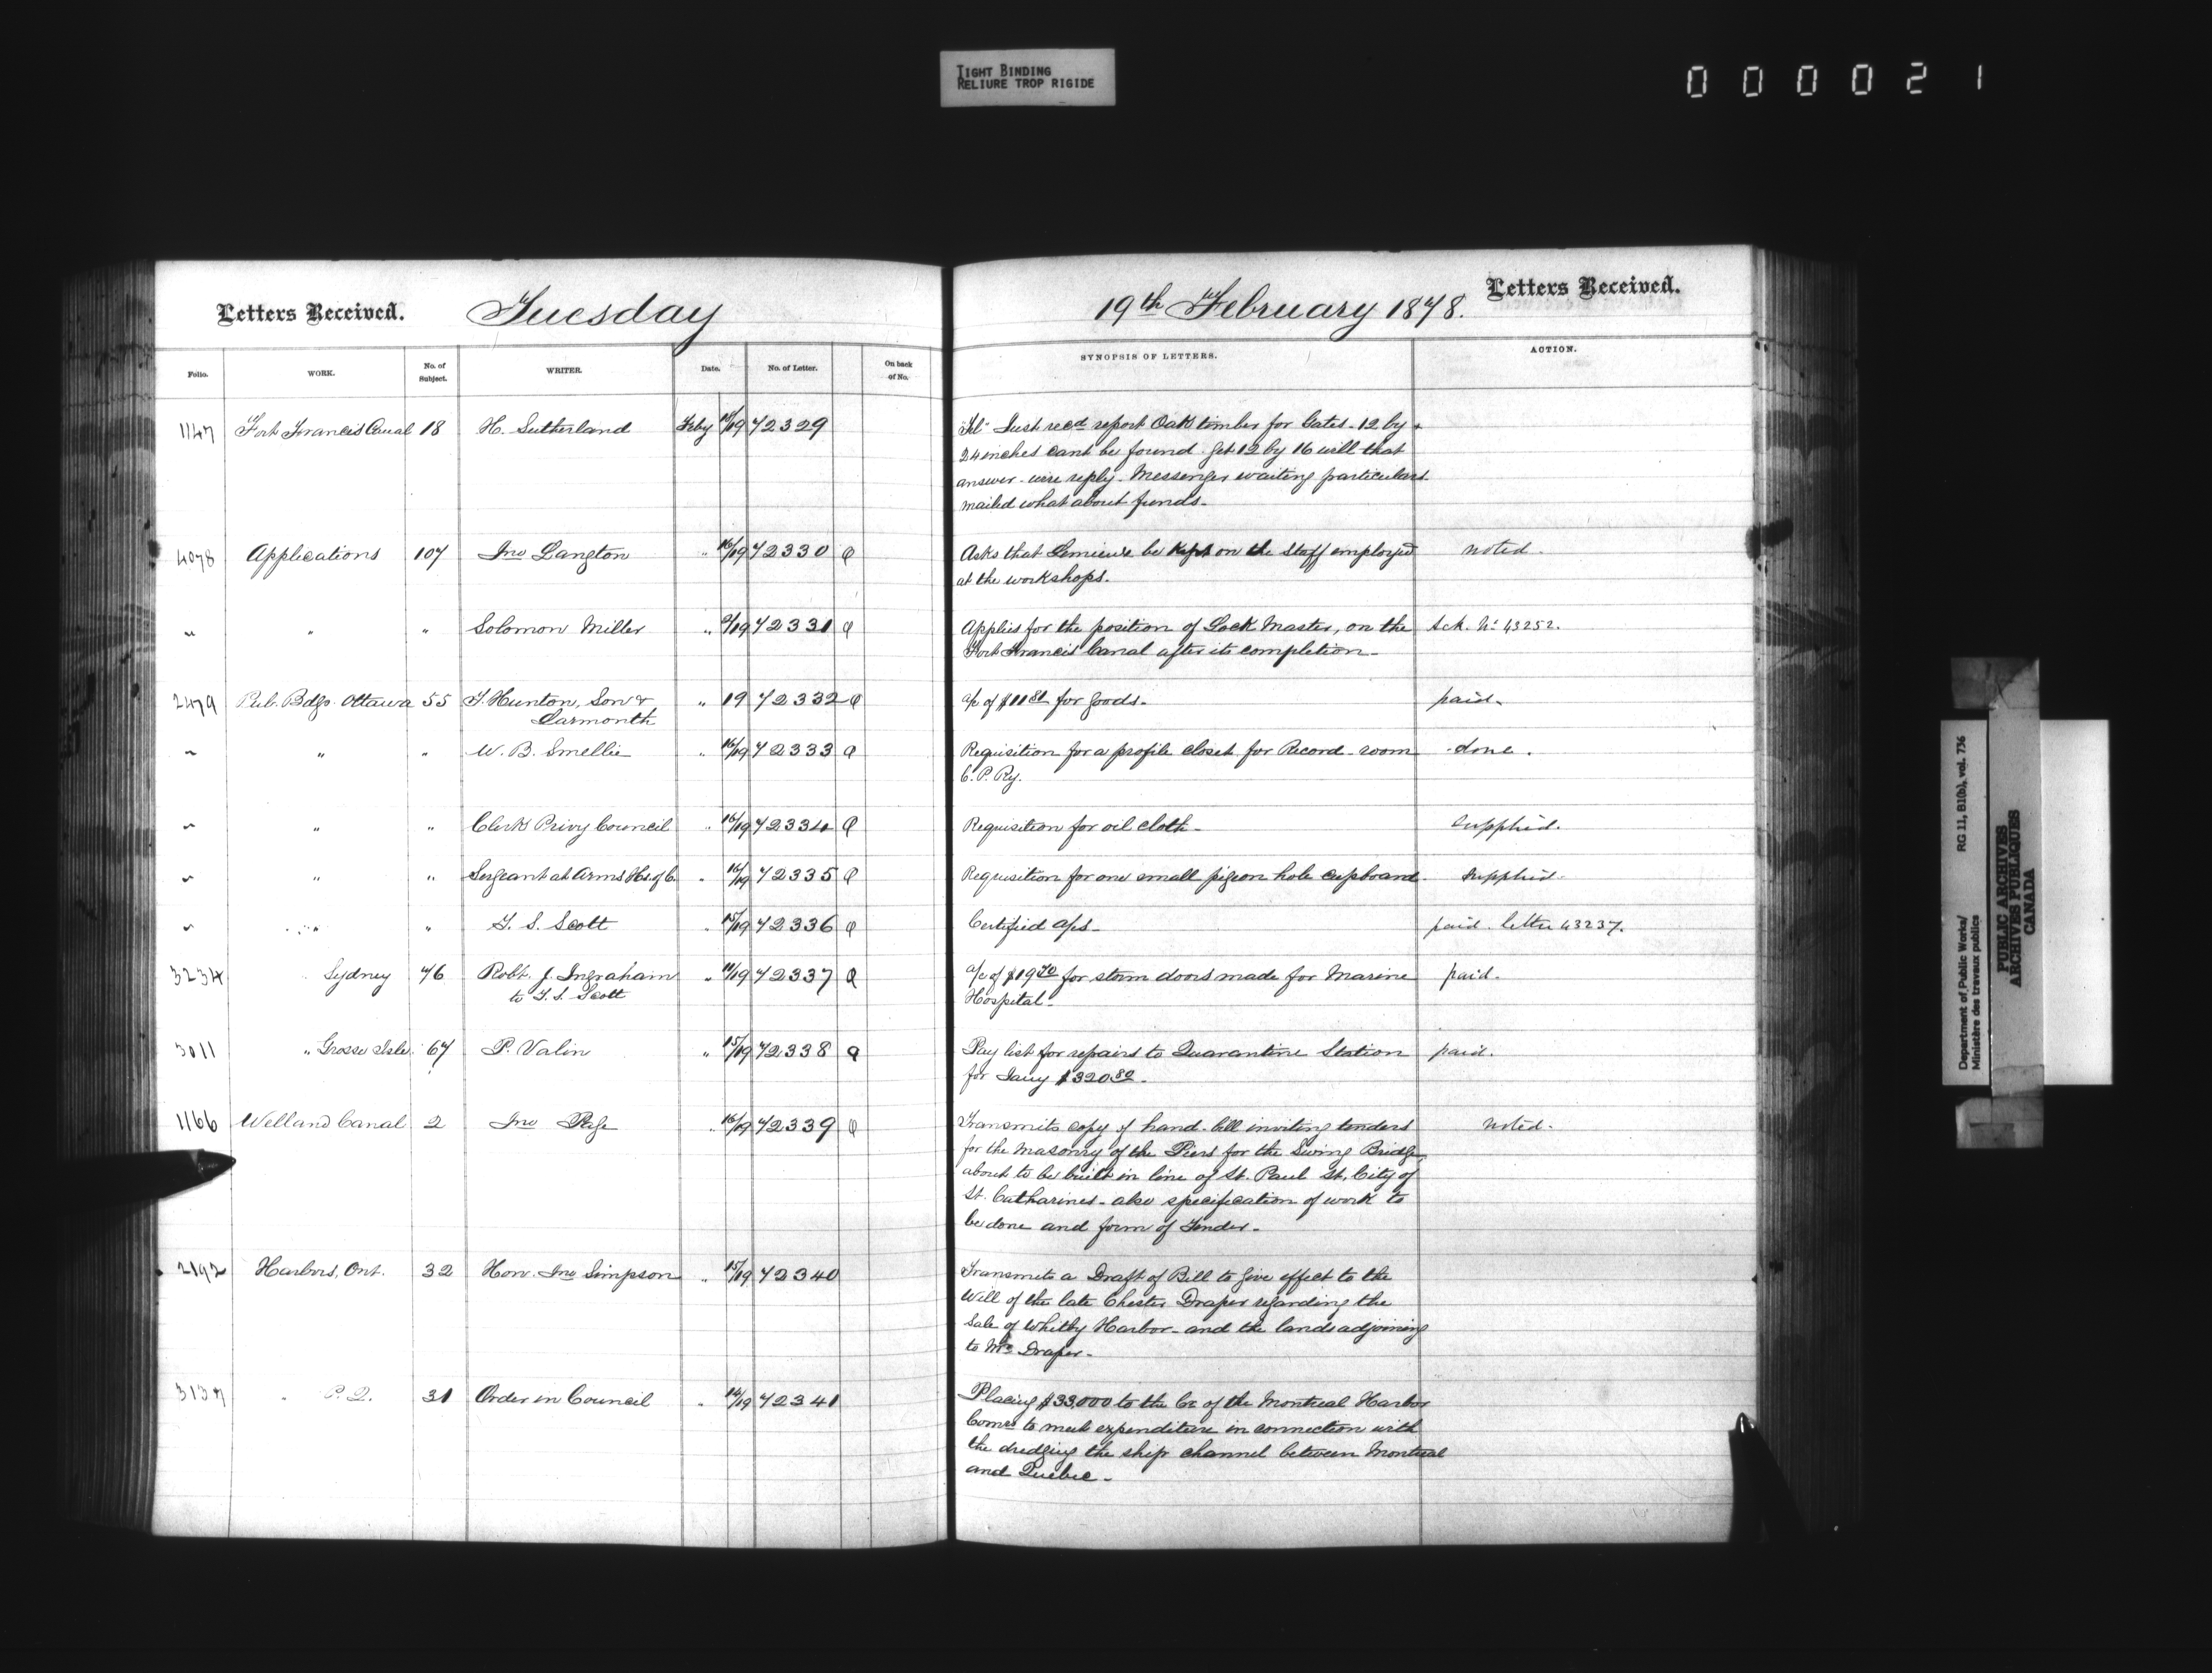 TIGHT BINDING
RELIURE TROP RIGIDE
000021
Letters Received. Tuesday
19th February 1878. Letters Received.
Folio. WORK. No. of Subject. WRITER. Date. No. of Letter. On back of No. SYNOPSIS OF LETTERS. ACTION.
1147 Fort Francis Canal 18 H. Sutherland Feby 18/19 72329 "Tel" Just recd report Oak timber for Gates - 12 by
24 inches cant be found. Get 12 by 16 will that
answer - wire reply - Messenger waiting particulars
mailed what about funds -
4078 Applications 107 Jno Langton " 16/19 72330 Q Asks that Lemieux be kept on the Staff employed noted -
at the workshops.
" " " Solomon Miller " 9/19 72331 Q Applies for the position of Lock Master, on the Ack. No 43252.
Fort Francis Canal after its completion -
2479 Pub. Bdgs. Ottawa 55 T. Hunton, Son & " 19 72332 Q a/c of $11 for goods - paid.
Larmonth
" " " W. B. Smellie " 16/19 72333 Q Requisition for a profile closet for Record-room done.
C. P. Ry.
" " " Clerk Privy Council " 16/19 72334 Q Requisition for oil cloth - supplied.
" " " Sergeant at Arms Hs. of C. " 16/19 72335 Q Requisition for one small pigeon hole cupboard - supplied -
" " " T. S. Scott " 15/19 72336 Q Certified a/cs - paid. letter 43237.
3234 " Sydney 76 Robt. J. Ingraham " 11/19 72337 Q a/c of $19 70 for storm doors made for Marine paid.
to T. S. Scott Hospital -
3011 " Grosse Isle 67 P. Valin " 15/19 72338 Q Pay list for repairs to Quarantine Station paid.
for Jany $320.80 -
1166 Welland Canal 2 Jno Page " 16/19 72339 Q Transmits copy of hand-bill inviting tenders noted -
for the Masonry of the Piers for the Swing Bridge
about to be built in line of St. Paul St. City of
St. Catharines - also specification of work to
be done and form of Tender -
2192 Harbors, Ont. 32 Hon. Jno Simpson " 15/19 72340 Transmits a Draft of Bill to give effect to the
Will of the late Chester Draper regarding the
Sale of Whitby Harbor - and the lands adjoining
to Mrs Draper -
3137 " P. Q. 31 Order in Council " 14/19 72341 Placing $33,000 to the Cr. of the Montreal Harbor
Comrs to meet expenditure in connection with
the dredging the ship channel between Montreal
and Quebec -
Department of Public Works/
Ministère des travaux publics
RG 11, B1(b), vol. 736
PUBLIC ARCHIVES
ARCHIVES PUBLIQUES
CANADA